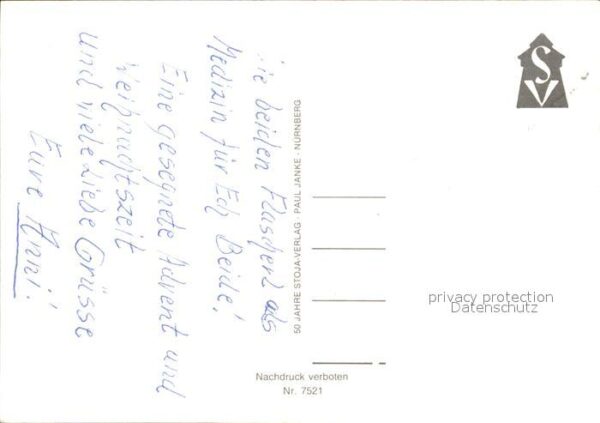 Die beiden Flascherl als
Medizin für Ech Beide!
Eine gesegnete Advent und
Weihnachtszeit
und viele Liebe Grüsse
Eure Anni!
50 JAHRE STOJA-VERLAG · PAUL JANKE · NÜRNBERG
SV
privacy protection
Datenschutz
Nachdruck verboten
Nr. 7521